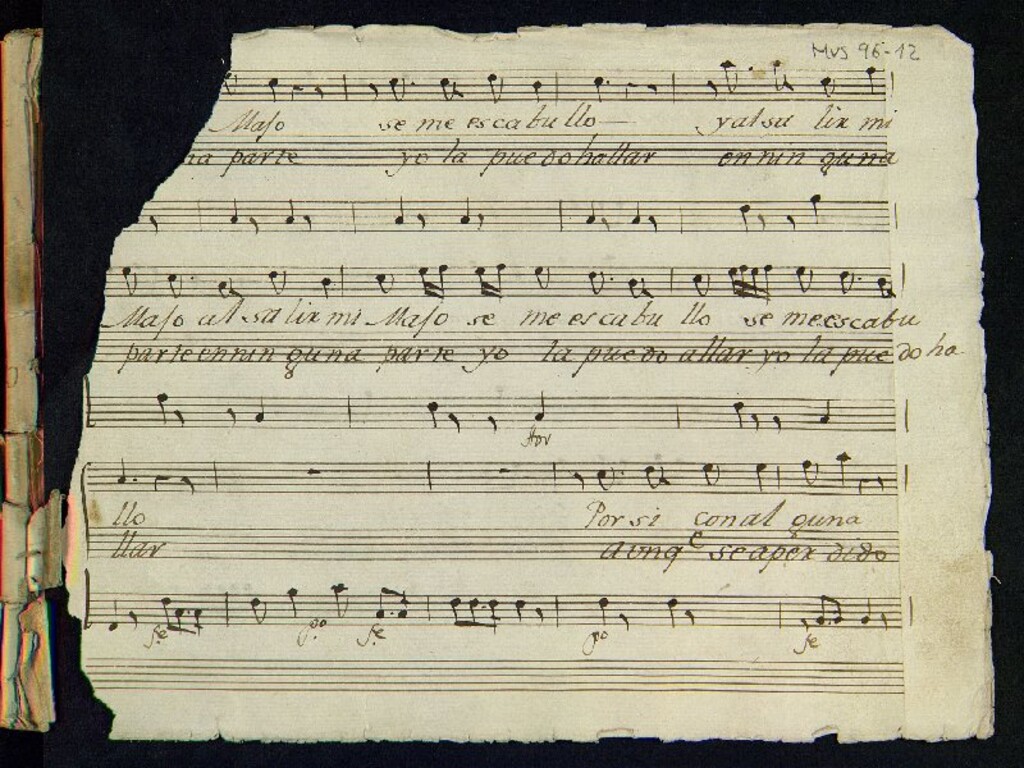 MUS 96-12
Maso se me escabu llo y al sa lir mi
na parte yo la pue do hallar en nin guna
Maso al sa lir mi Maso se me es cabu llo se me escabu
parte en nin guna parte yo la pue do allar yo la pue do ha
llo Por si con al guna
llar aunqe se a per dido
fe po fe po fe